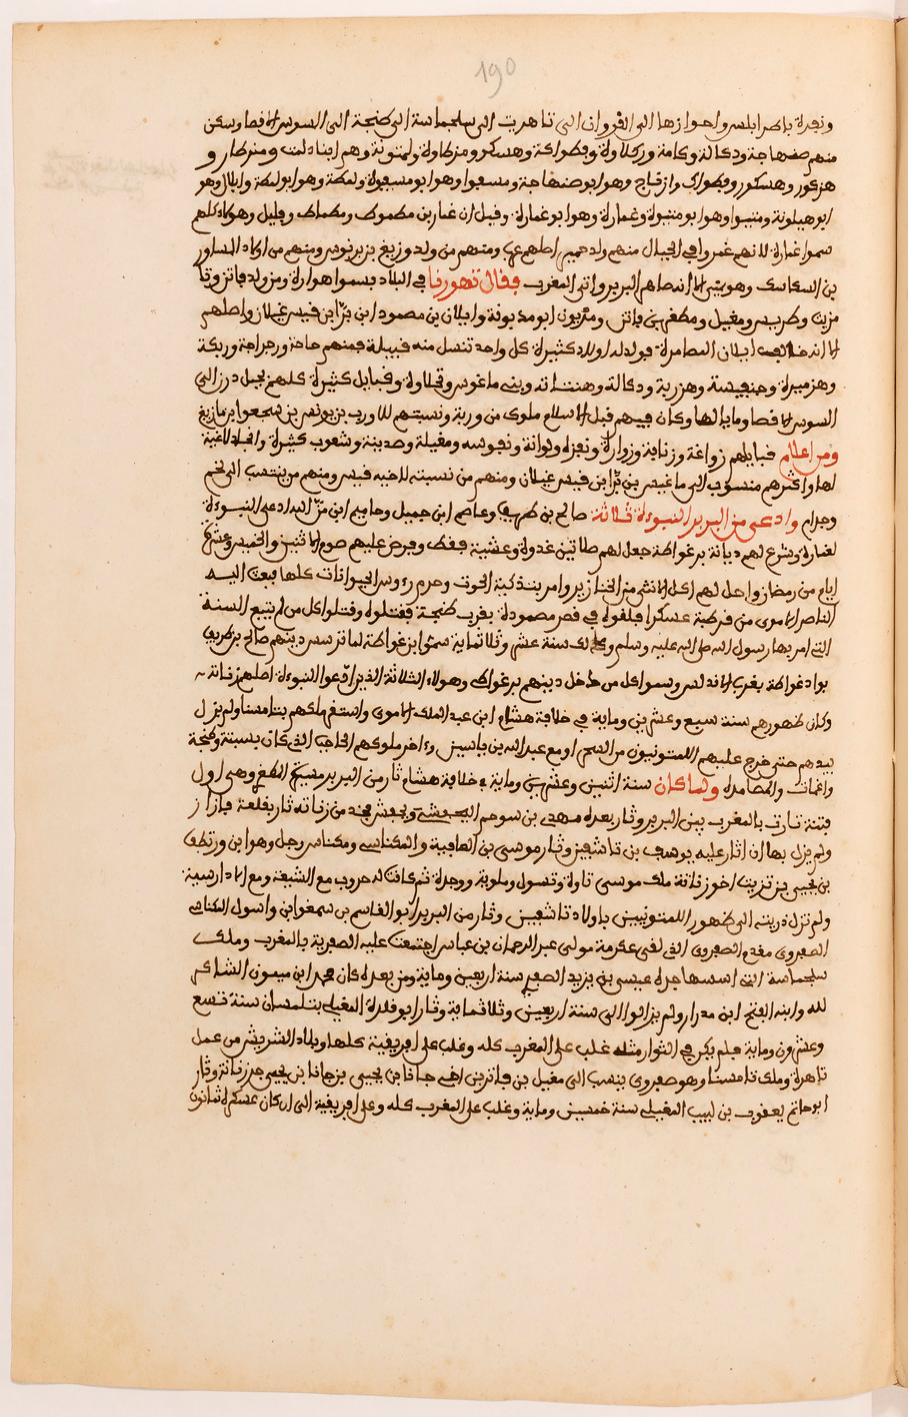 190
ونجدة باطرابلس واحوازها الى القروان الى تاهرت الى سلجماسة الى طنجة الى السوس الاقصا وسكن
منهم صنهاجة ودكالة وكامة وركلاوة وفطواكة وهسكور ومزطاوة ولمتونة وهم ابنا دلت ومنزطار و
هزكور وهسكور وفطواك وازفاج وهو ابو صنهاجة ومسفوا وهو ابو مسفوة ولمطة وهو ابو لمطة وايلال وهو
ابو هيلونة ومتيوا وهو ابو متيوة وغمارة وهو ابو غمارة وفيل ان غمار بن مطموك ومطماط وفليل وهؤلاء كلهم
سموا غمارة لانهم غمروا في الجبال منهم ولد حميم اصلهم عرب ومنهم من ولد وزيغ بن برنوس ومنهم من اولاد المساور
بن السكاسك وهو يثنى الا انه صاهم البربر واتى المغرب فقال تهورنا في البلاد بسموا هوارة ومن ولد فاتن وتا
مزيت وطريسر ومغيل ومطغر بن فاتن ومديون ابو مديونة وايلان بن مصمود ابن برا ابن قيس غيلان واصلهم
ايلان المصامدة فولد له اولاد كثيرة كل واحد تنسل منه قبيلة فمنهم حاحة ورجراجة وريكة
وهزميرة وجنفيسة وهزرية ودكالة وهنتاتة وبنى ماغوس وقبايل كثيرة كلهم بجبل درن الى
السوس الاقصا وما والاها وكان فيهم قبل الاسلام ملوك من وربة ونسبتهم للاورب بن يونس بن
ومن اعلام قبايلهم زواغة وزناتة وزوارة ونفزة ولواتة ونفوسه ومغيلة وصدينة وشعوب كثيرة
لها واكثرهم منسوب الى ماغيس بن برا ابن قيس غيلان ومنهم من نسبته للاخيه قيس ومنهم من ينتسب الى لخم
وجرام وادعى من البربر النبوءة ثلاثة صالح بن طريف وعاصم ابن جميل وحاميم ابن من الله ادعى النبوءة
لغمارة وشرع لهم ديانة برغواطة جعل لهم صلاتين غدوة وعشية فقط وفرض عليهم صوم الاثنين والخميس وعشرة
ايام من رمضان واحل لهم اكل الانثى من الخنازير وامر بتذكية الحوت وحرم رءوس الحيوانات كلها فبعث اليه
الناصر الاموى من قرطبة عسكرا فلقوه في قصر مصمودة بقرب طنجة فقتلوه وقتلوا كل من لم يتبع السنة
التى امر بها رسول الله صلى الله عليه وسلم وذلك سنة عشر وثلاثماية سموا برغواطة لما ترسس دينهم صالح بن طريف
بوادغواطة بغرب الاندلس وسموا كل من دخل دينهم برغواطى وهولاء الثلاثة الذين ادعوا النبوءة اصلهم زناتة
وكان ظهورهم سنة سبع وعشرين وماية في خلافة هشام ابن عبد الملك الاموى واستقر ملكهم بتامسنا ولم يزل
بيدهم حتى خرج عليهم اللمتونيون من الصحرا ومع عبد الله بن ياسين وءاخر ملوكهم الحاجب الذى كان بسبتة وطنجة
واغمات والمصامدة ولما كان سنة اثنين وعشرين وماية في خلافة هشام ثار من البربر ميسرة وهى اول
فتنة ثارت بالمغرب بين البربر وثار بعده مهدى بن سوهم من زناته ثار بقلعة فازاز
ولم يزل بها ان اثار عليه يوسف بن تاشفين وثار موسى بن العافية والمكناسى ومكناس رجل وهو ابن ورتطف
بن يحيى بن تزيت اخو زناتة ملك موسى تاوة وتسول وملوية ووجدة ثم كانت له حروب مع الشيعة ومع الادارسية
ولم تزل ذريته الى ظهور اللمتونيين باولاد تاشفين وثار من البربر ابو القاسم بن سمغوا بن واسول المكناسى
الصفروى مقدم الصفروى الذى لقى عكرمة مولى عبد الرحمان بن عباس اجتمعت عليه الصفرية بالمغرب وملك
سلجماسة التى اسسها جده عيسى بن يزيد الصفرى سنة اربعين وماية ومن بعده كان محمد ابن ميمون الشاكر
لله وابنه الفتح ابن مدرار ولم يزالوا الى سنة اربعين وثلاثماية وثار ابو قدرة المغيلى بتلمسان سنة تسع
وعشرون وماية فلم يكن في الثوار مثله غلب على المغرب كله وغلب على افريقية كلها وبلاد الشريش من عمل
تاهرة وملك تامسنا وهو صفروى بنسب الى مغيل بن فاتن بن اخى جانا بن يحيى بن جانا بن يحيى جد زناتة وثار
ابو حاتم يعقوب بن لبيب المغيلى سنة خمسين وماية وغلب على المغرب كله وعلى افريقية الى ان كان عسكره ثمانون